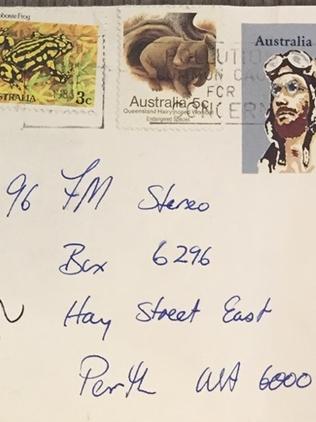 oboree Frog
STRALIA 3c
Australia 5c
Queensland Hairy-nosed Wombat
Endangered Species
Australia
LLUTIO
COMMON CAU
FOR
NCERN
96 FM Stereo
Box 6296
Hay Street East
Perth WA 6000